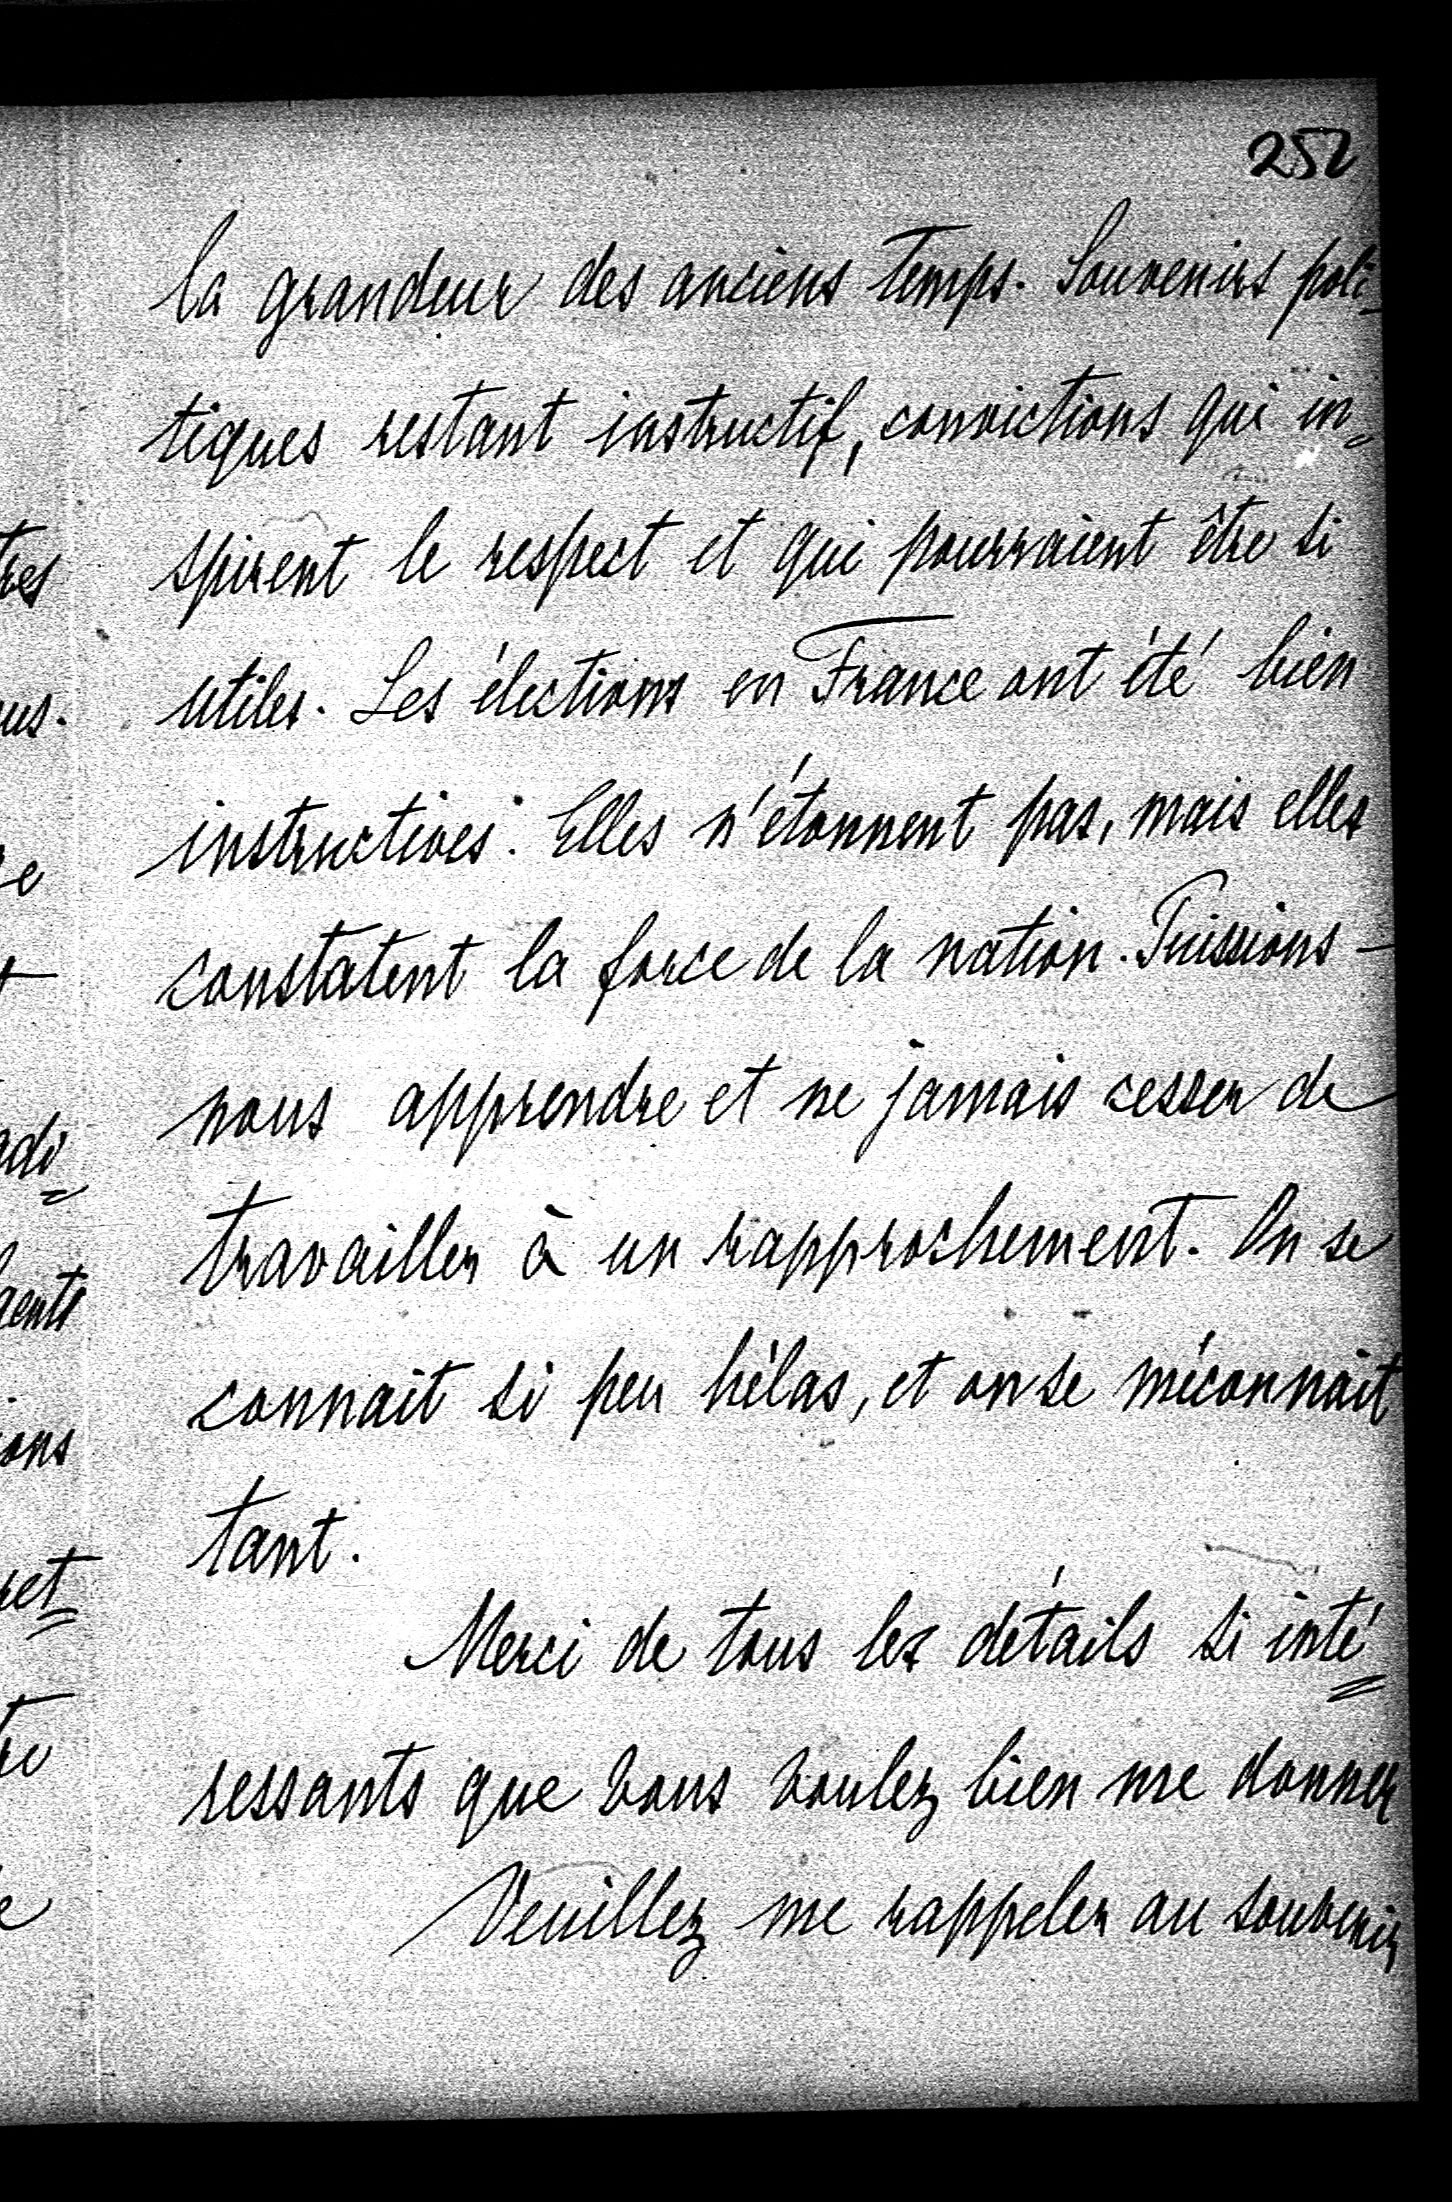 252
la grandeur des anciens temps. Souvenirs poli-
tiques restant instructif, convictions qui in-
spirent le respect et qui pourraient être si
utiles. Les élections en France ont été bien
instructives. Elles n'étonnent pas, mais elles
constatent la force de la nation. Puissions-
nous apprendre et ne jamais cesser de
travailler à un rapprochement. On se
connait si peu hélas, et on se méconnait
tant.
Merci de tous les détails si inté=
ressants que vous voulez bien me donner
Veuillez me rappeler au souvenir